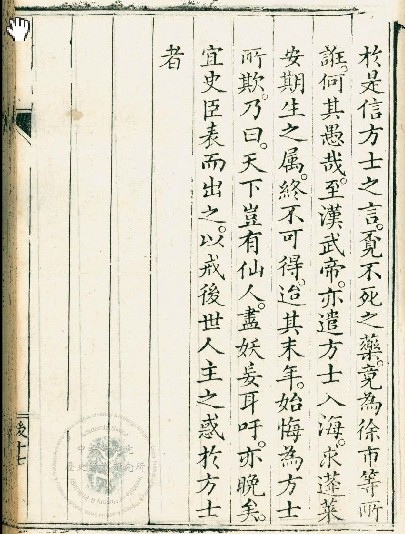 於是信方士之言。覔不死之藥。竟為徐市等所
誑。何其愚哉。至漢武帝。亦遣方士入海。求蓬萊
安期生之属。終不可得。迨其末年。始悔為方士
所欺。乃曰。天下豈有仙人。盡妖妄耳。吁。亦晚矣。
宜史臣表而出之。以戒後世人主之惑於方士
者
後十七